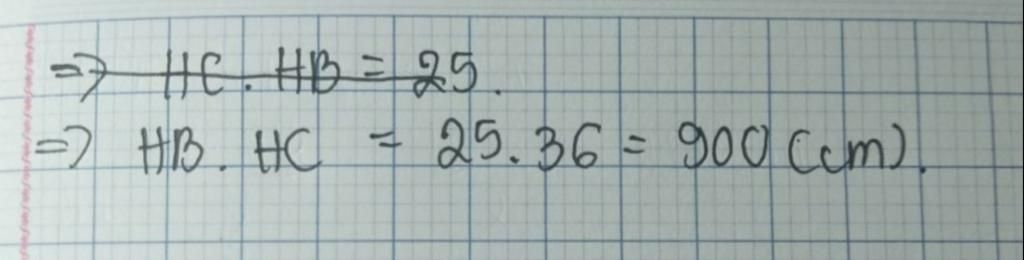 => HC . HB = 25.
=> HB . HC = 25.36 = 900 (cm).